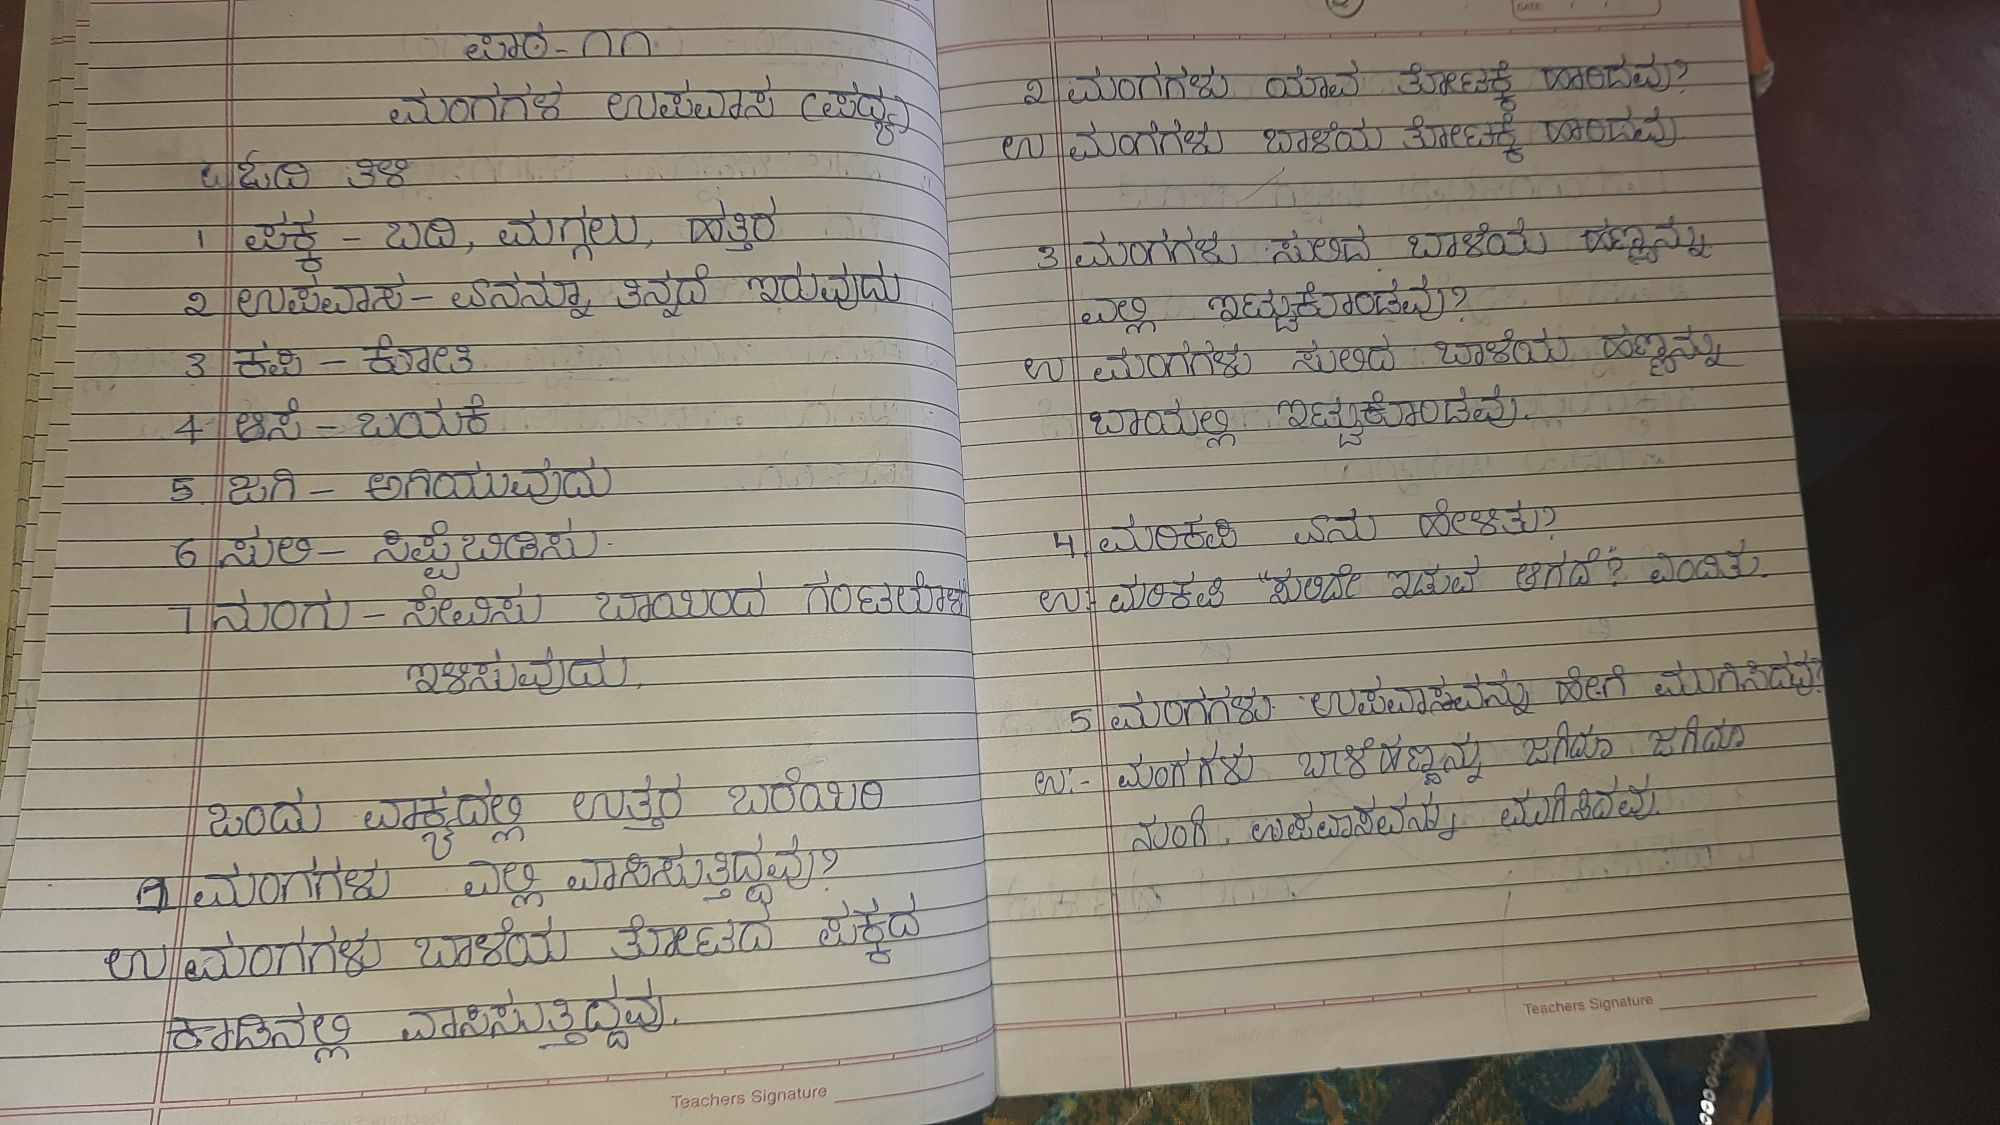 ಪಾಠ - ೧೧
ಮಂಗಗಳ ಉಪವಾಸ (ಪದ್ಯ)
ಓದಿ ತಿಳಿ
1 ಪಕ್ಕ - ಬದಿ, ಮಗ್ಗಲು, ಹತ್ತಿರ
2 ಉಪವಾಸ - ಏನನ್ನೂ ತಿನ್ನದೆ ಇರುವುದು
3 ಕಪಿ - ಕೋತಿ
4 ಆಸೆ - ಬಯಕೆ
5 ಜಗಿ - ಅಗಿಯುವುದು
6 ಸುಲಿ - ಸಿಪ್ಪೆ ಬಿಡಿಸು.
7 ನುಂಗು - ಸೇವಿಸು ಬಾಯಿಂದ ಗಂಟಲೊಳಗೆ
ಇಳಿಸುವುದು.
ಒಂದು ವಾಕ್ಯದಲ್ಲಿ ಉತ್ತರ ಬರೆಯಿರಿ
೧ ಮಂಗಗಳು ಎಲ್ಲಿ ವಾಸಿಸುತ್ತಿದ್ದವು?
ಉ ಮಂಗಗಳು ಬಾಳೆಯ ತೋಟದ ಪಕ್ಕದ
ಕಾಡಿನಲ್ಲಿ ವಾಸಿಸುತ್ತಿದ್ದವು.
2 ಮಂಗಗಳು ಯಾವ ತೋಟಕ್ಕೆ ಹಾರಿದವು?
ಉ ಮಂಗಗಳು ಬಾಳೆಯ ತೋಟಕ್ಕೆ ಹಾರಿದವು
3 ಮಂಗಗಳು ಸುಲಿದ ಬಾಳೆಯ ಹಣ್ಣನ್ನು
ಎಲ್ಲಿ ಇಟ್ಟುಕೊಂಡವು?
ಉ ಮಂಗಗಳು ಸುಲಿದ ಬಾಳೆಯ ಹಣ್ಣನ್ನು
ಬಾಯಲ್ಲಿ ಇಟ್ಟುಕೊಂಡವು.
4 ಮರಿಕಪಿ ಏನು ಹೇಳಿತು?
ಉ:- ಮರಿಕಪಿ "ಸುಲಿದೇ ಇಡುವ ಆಗದೆ? ಎಂದಿತು.
5 ಮಂಗಗಳು ಉಪವಾಸವನ್ನು ಹೇಗೆ ಮುಗಿಸಿದವು?
ಉ:- ಮಂಗಗಳು ಬಾಳೆಹಣ್ಣನ್ನು ಜಗಿದೂ ಜಗಿದೂ
ನುಂಗಿ ಉಪವಾಸವನ್ನು ಮುಗಿಸಿದವು.
DATE / /
Teachers Signature
Teachers Signature